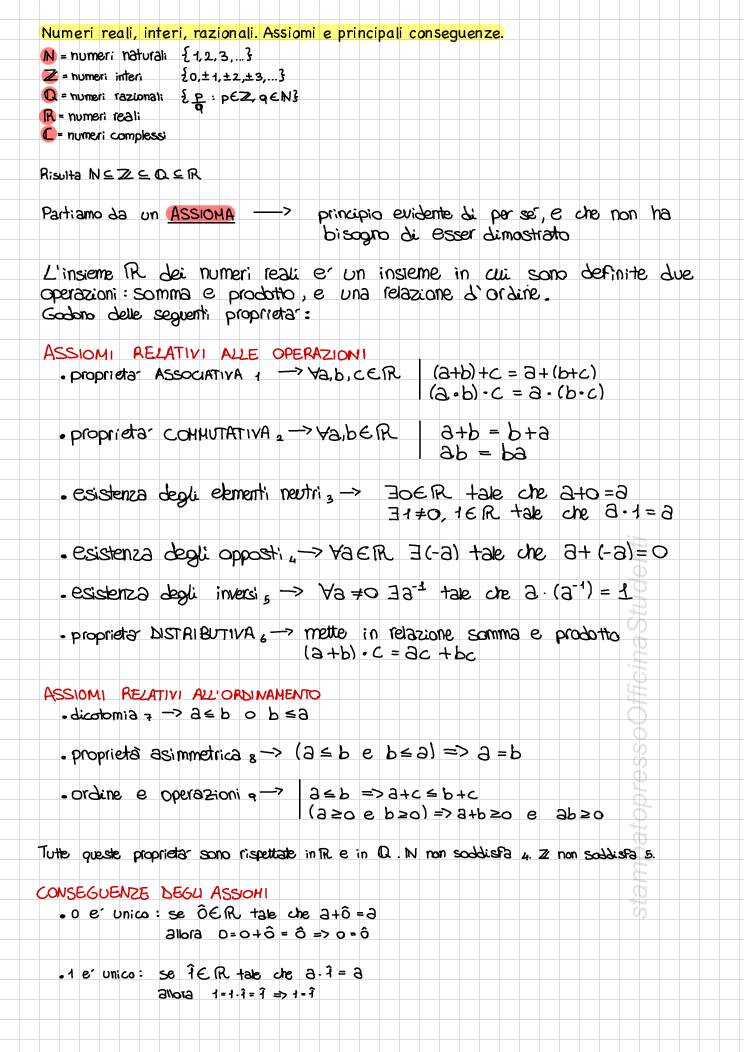 Numeri reali, interi, razionali. Assiomi e principali conseguenze.
N = numeri naturali {1,2,3,...}
Z = numeri interi {0,±1,±2,±3,...}
Q = numeri razionali {p/q : p∈Z, q∈N}
R = numeri reali
C = numeri complessi
Risulta N⊆Z⊆Q⊆R
Partiamo da un ASSIOMA → principio evidente di per se', e che non ha
bisogno di esser dimostrato
L'insieme R dei numeri reali e' un insieme in cui sono definite due
operazioni: somma e prodotto, e una relazione d'ordine.
Godono delle seguenti proprieta':
ASSIOMI RELATIVI ALLE OPERAZIONI
• proprieta' ASSOCIATIVA 1 → ∀a,b,c∈R | (a+b)+c = a+(b+c)
(a•b)•c = a•(b•c)
• proprieta' COMMUTATIVA 2 → ∀a,b∈R | a+b = b+a
ab = ba
• esistenza degli elementi neutri 3 → ∃0∈R tale che a+0=a
∃1≠0, 1∈R tale che a•1=a
• esistenza degli opposti 4 → ∀a∈R ∃(-a) tale che a+(-a)=0
• esistenza degli inversi 5 → ∀a≠0 ∃a⁻¹ tale che a•(a⁻¹)=1
• proprieta' DISTRIBUTIVA 6 → mette in relazione somma e prodotto
(a+b)•c = ac+bc
ASSIOMI RELATIVI ALL'ORDINAMENTO
• dicotomia 7 → a≤b o b≤a
• proprietà asimmetrica 8 → (a≤b e b≤a) => a=b
• ordine e operazioni 9 → | a≤b => a+c≤b+c
(a≥0 e b≥0) => a+b≥0 e ab≥0
Tutte queste proprieta' sono rispettate in R e in Q. N non soddisfa 4. Z non soddisfa 5.
CONSEGUENZE DEGLI ASSIOMI
• 0 e' unico: se ô∈R tale che a+ô=a
allora 0=0+ô=ô => 0=ô
• 1 e' unico: se 1̂∈R tale che a•1̂=a
allora 1=1•1̂=1̂ => 1=1̂
stampatopressoOfficinaStudenti